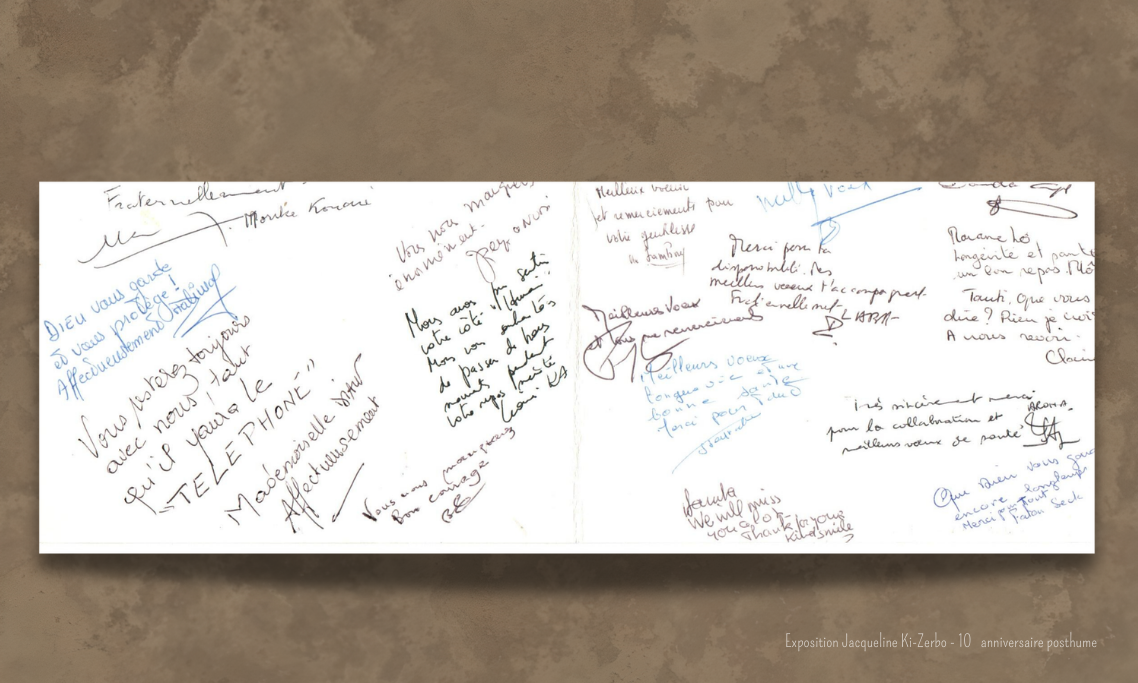 Fraternellement
Monike
Dieu vous garde
et vous protège !
Affectueusement
Vous resterez toujours
avec nous ! tant
qu'il y aura le
"TELEPHONE"
Mademoiselle DIAW
Affectueusement
Vous nous manquerez
énormément.
Nous avons
votre côté "Humain"
Nous vous souhaitons
de passer de bons
moments pendant
votre repos mérité
KA
Vous nous manquerez
Bon courage
Meilleurs voeux
et remerciements pour
votre gentillesse
Merci pour ta
disponibilité. Mes
meilleurs voeux t'accompagnent.
Fraternellement
Meilleurs Voeux
et tous mes remerciements
Meilleurs voeux
longue vie et une
bonne santé
Merci pour tout
Madame Lô
Longévité et santé
un bon repos
Tanti, que vous
dire? Rien je crois
A nous revoir.
Très sincèrement merci
pour la collaboration et
meilleurs voeux de santé
We will miss
you a lot
Thanks for your
Kindsmile
Que Dieu vous garde
encore longtemps
Merci pour tout
Fatou Seck
Exposition Jacqueline Ki-Zerbo - 10 anniversaire posthume